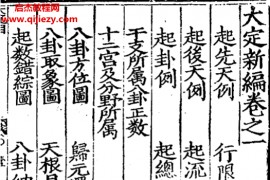 大定新編卷之一
起先天例 行限
起後天例 起流
起卦例 起總
干支所属八卦正数
十二宫及分野所属
八卦方位圖 歸元
八卦取象圖 天根
起数錯綜圖 八卦